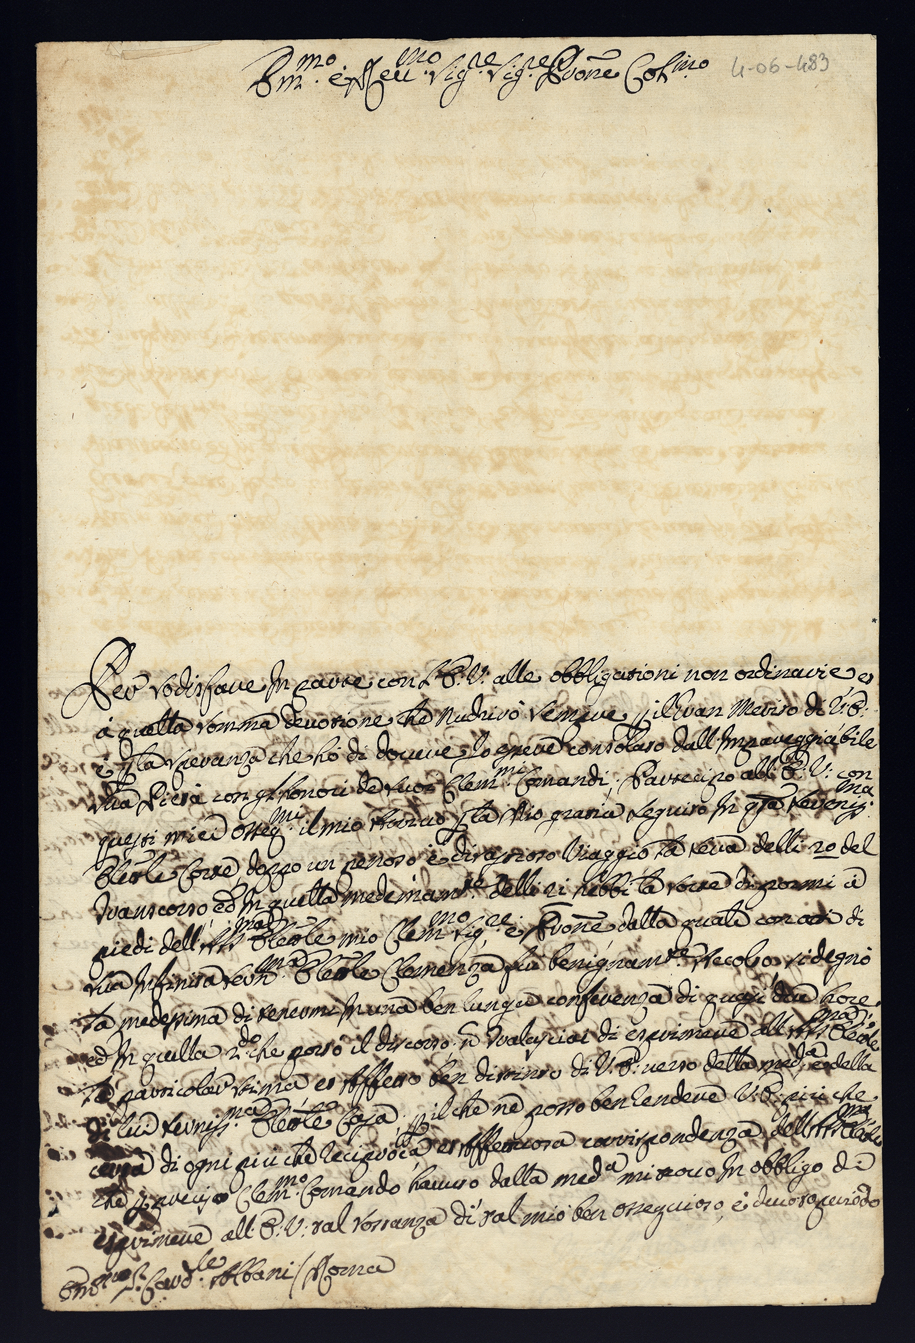 Em.mo e R.eu.mo Sig.re Sig.re Prone Col.mo 4-06-483
Per sodisfare in parte con l'E: V: alle obbligationi non ordinarie et
à quella somma devotione che nudrirò sempre p il gran merito di V: E:
e p la speranza che hò di dovere io essere consolato dall'Impareggiabile
sua Pietà con gl'honori de suoi Clem.mi Comandi; Partecipo all'E: V: con
questi miei osseq.mi il mio arrivo p la Dio gratia seguito in q.ta Sereniss.ma
Elerle Corte doppo un penoso e disastroso Viaggio la sera delli 20 del
trascorso ed in quella medesimam.te delli 21 hebbi la sorte di pormi à
piedi dell' Elerle mio Clem.mo Sig.re e Prone dalla quale con atti di
sua Infinita Elerle Clemenza fui benignam.te accolto, si degnò
la medessima di tenermi in una ben lunga conferenza di quasi due hore,
ed in quella che portò il discorso nò tralasciai di esprimere all' Elerle
la particolar stima et affetto ben distinto di V: E: verso detta med.a e della
di lui Sereniss.ma Elerle Casa, p il che ne posso ben rendere V: E: più che
certa di ogni più che reciproca et affettuosa corrispondenza dell'
che p preciso Clem.mo Comando havuto dalla med.a mi trovo in obbligo di
esprimere all'E: V: tal costanza di tal mio ben ossequioso, e
Em.mo S.r Card.le Albani / Roma